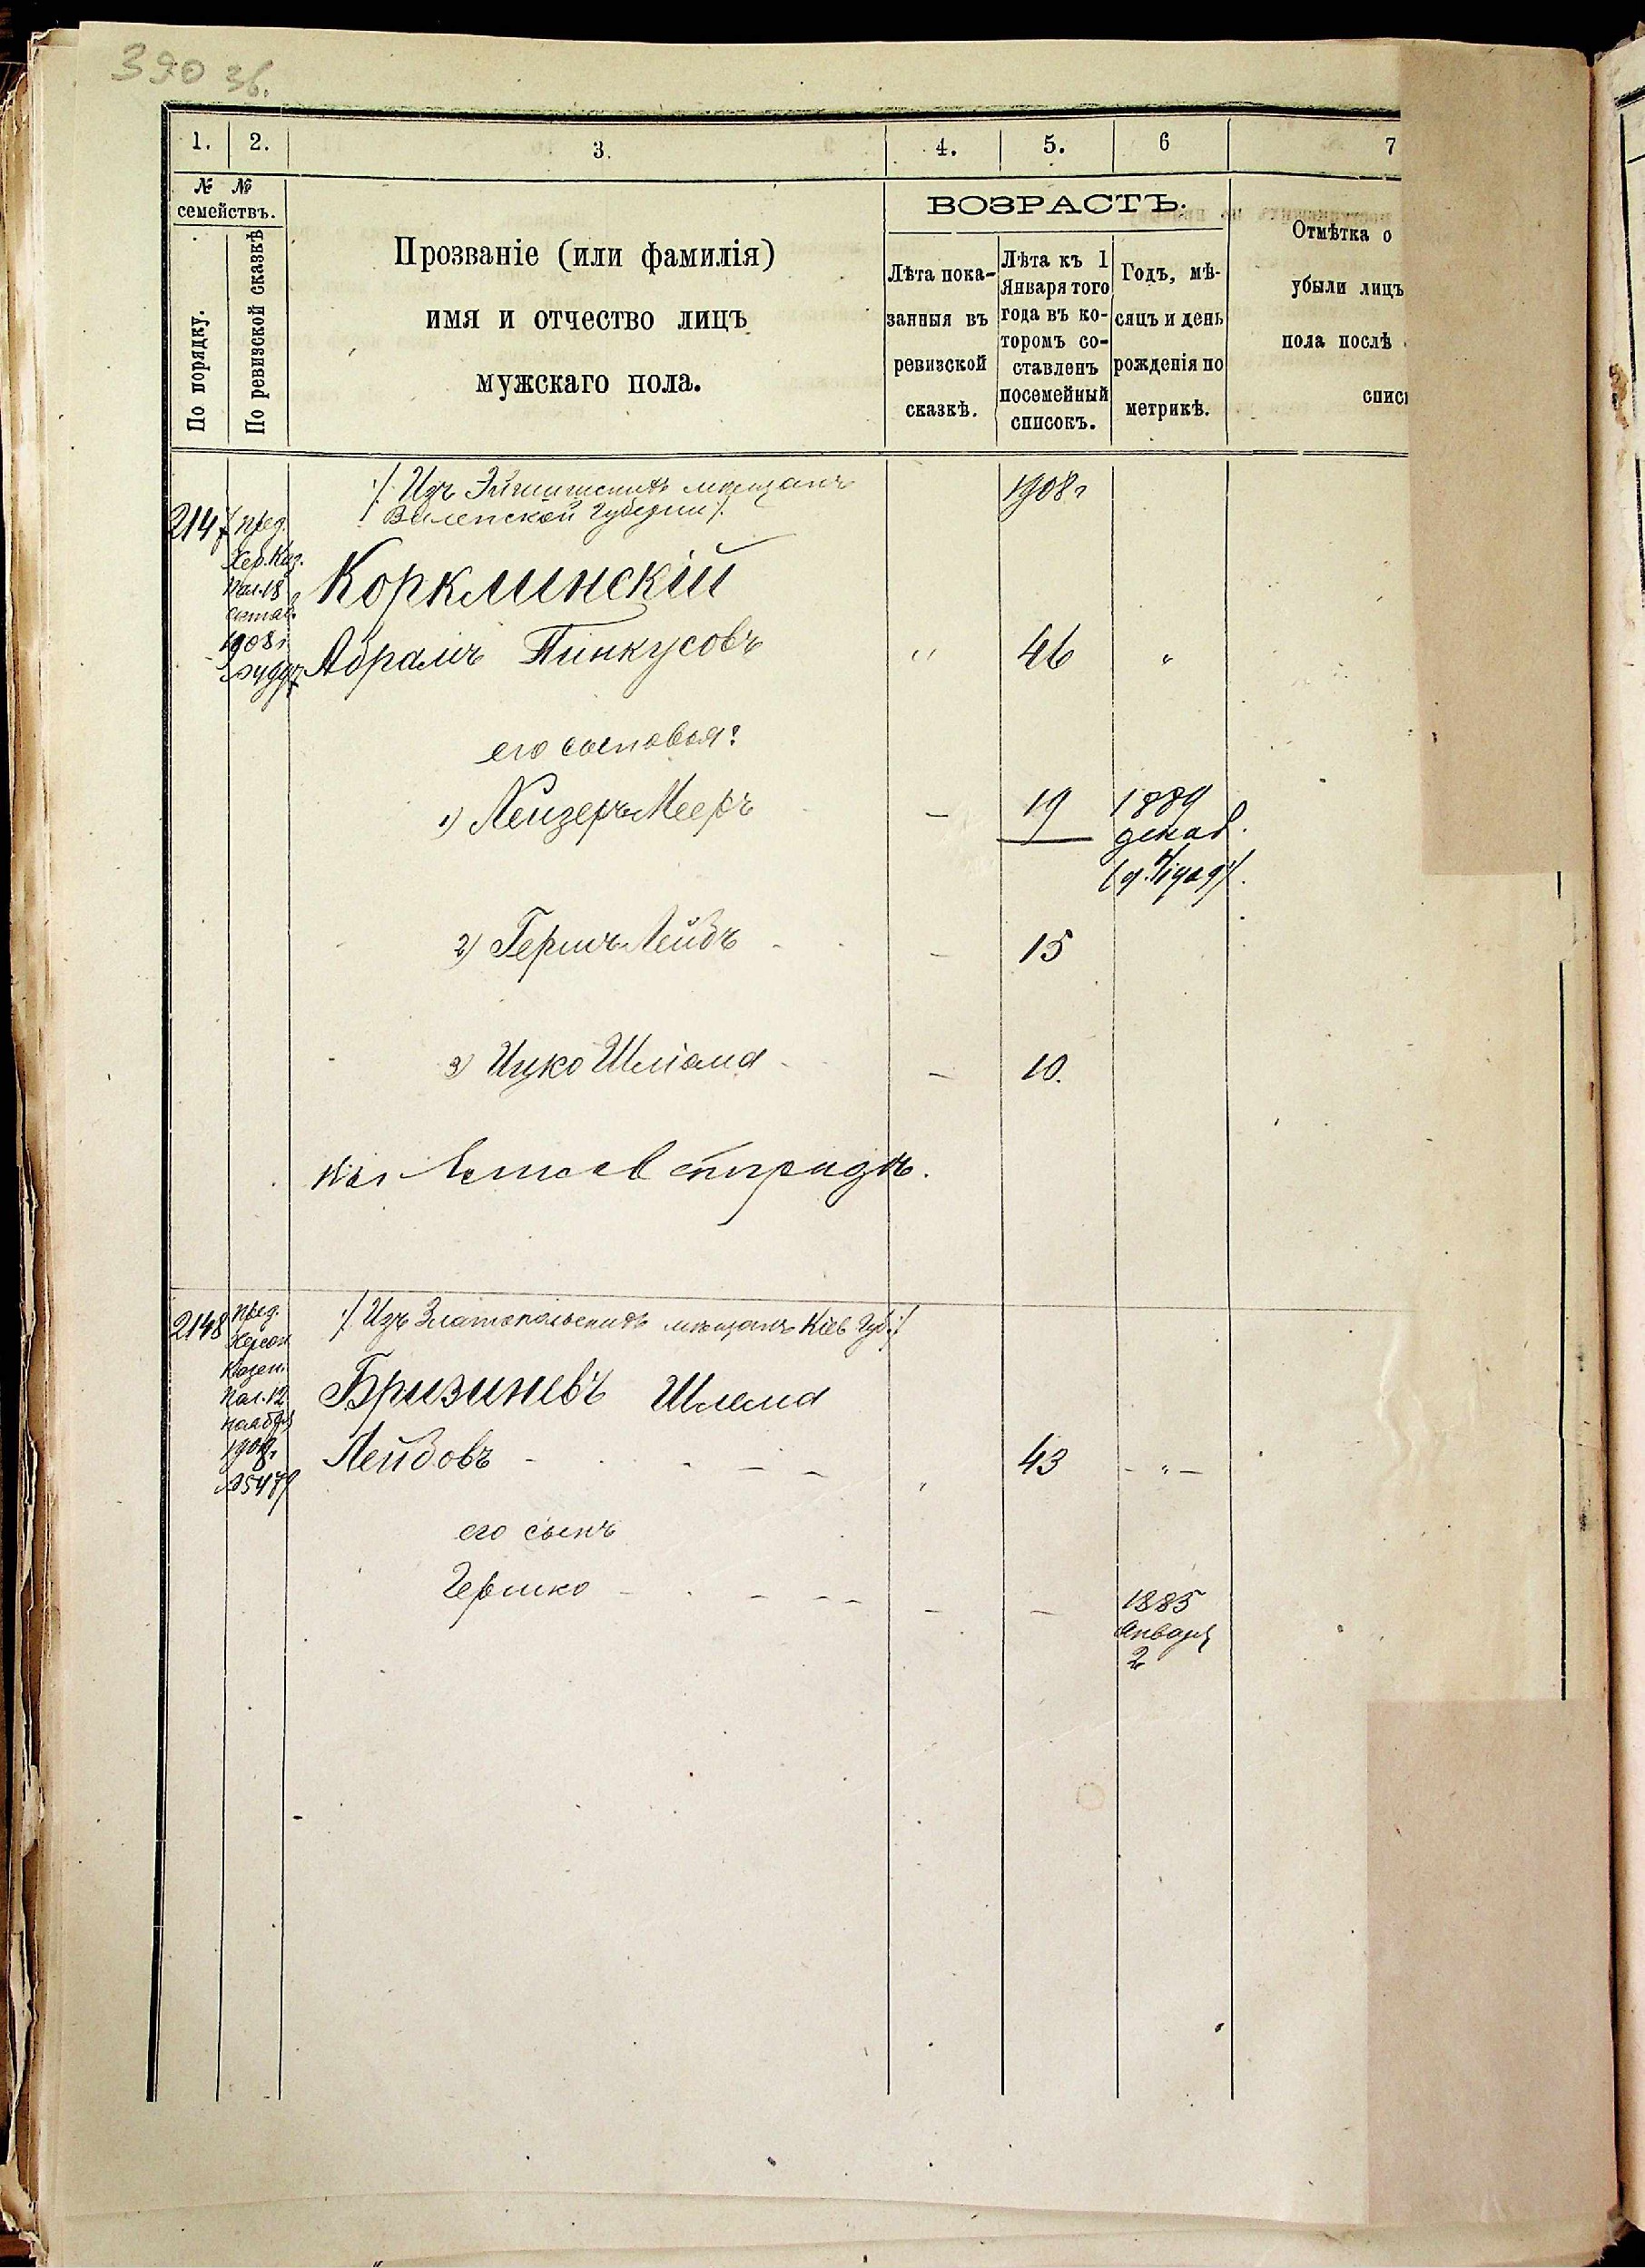 390 зв.
1. 2. 3. 4. 5. 6 7
№ №
семействъ.
По порядку.
По ревизской сказкѣ
Прозваніе (или фамилія)
имя и отчество лицъ
мужскаго пола.
ВОЗРАСТЪ.
Лѣта пока-
занныя въ
ревизской
сказкѣ.
Лѣта къ 1
Января того
года въ ко-
торомъ со-
ставленъ
посемейный
списокъ.
Годъ, мѣ-
сяцъ и день
рожденія по
метрикѣ.
Отмѣтка о
убыли лицъ
пола послѣ
спис
/Изъ Эйшишскихъ мѣщанъ 1908 г
Виленской Губерніи/.
2147 пред.
Хер. Каз.
Пал. 18
1908 г.
Корклинскій
Абрамъ Пинкусовъ " 46 "
его сыновья:
1) Лейзеръ Мееръ – 19 1889
декаб.
2) Гершъ Лейбъ – 15
3) Ицко Шліома – 10.
2148 пред.
Херсон
Казен.
Пал. 12
ноября
/Изъ Златопольскихъ мѣщанъ Кіев Губ./
Бризиневъ Шлема
Лейбовъ 43 – " –
его сынъ
Гершко – – 1885
Января
2